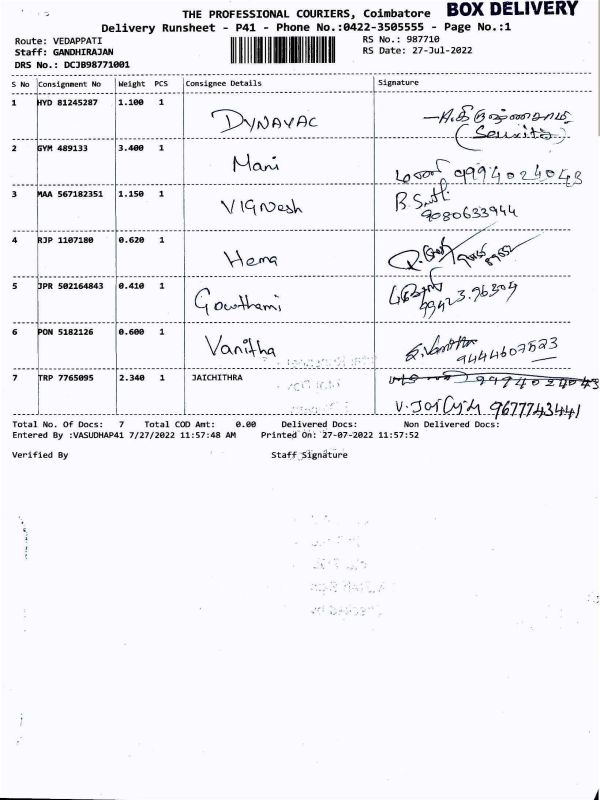 THE PROFESSIONAL COURIERS, Coimbatore BOX DELIVERY
Delivery Runsheet - P41 - Phone No.:0422-3505555 - Page No.:1
Route: VEDAPPATI RS No.: 987710
Staff: GANDHIRAJAN RS Date: 27-Jul-2022
DRS No.: DCJB98771001
S No Consignment No Weight PCS Consignee Details Signature
1 HYD 81245287 1.100 1 DYNAVAC
2 GYM 489133 3.400 1 Mani மணி 9994024043
3 MAA 567182351 1.150 1 VIGNesh
9080633944
4 RJP 1107180 0.620 1 Hema
5 JPR 502164843 0.410 1 Gowthami
99423.96304
6 PON 5182126 0.600 1 Vanitha Vanitha
9444607523
7 TRP 7765095 2.340 1 JAICHITHRA 9994024043
9677743441
Total No. Of Docs: 7 Total COD Amt: 0.00 Delivered Docs: Non Delivered Docs:
Entered By :VASUDHAP41 7/27/2022 11:57:48 AM Printed On: 27-07-2022 11:57:52
Verified By Staff Signature